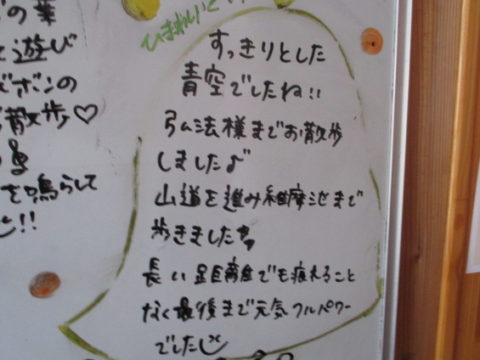 の葉
と遊び
ボンの
散歩♡
を鳴らして
!!
ひまわり
すっきりとした
青空でしたね!!
弘法様までお散歩
しました♪
山道を進み維摩池まで
歩きました
長い距離でも疲れること
なく最後まで元気フルパワー
でした